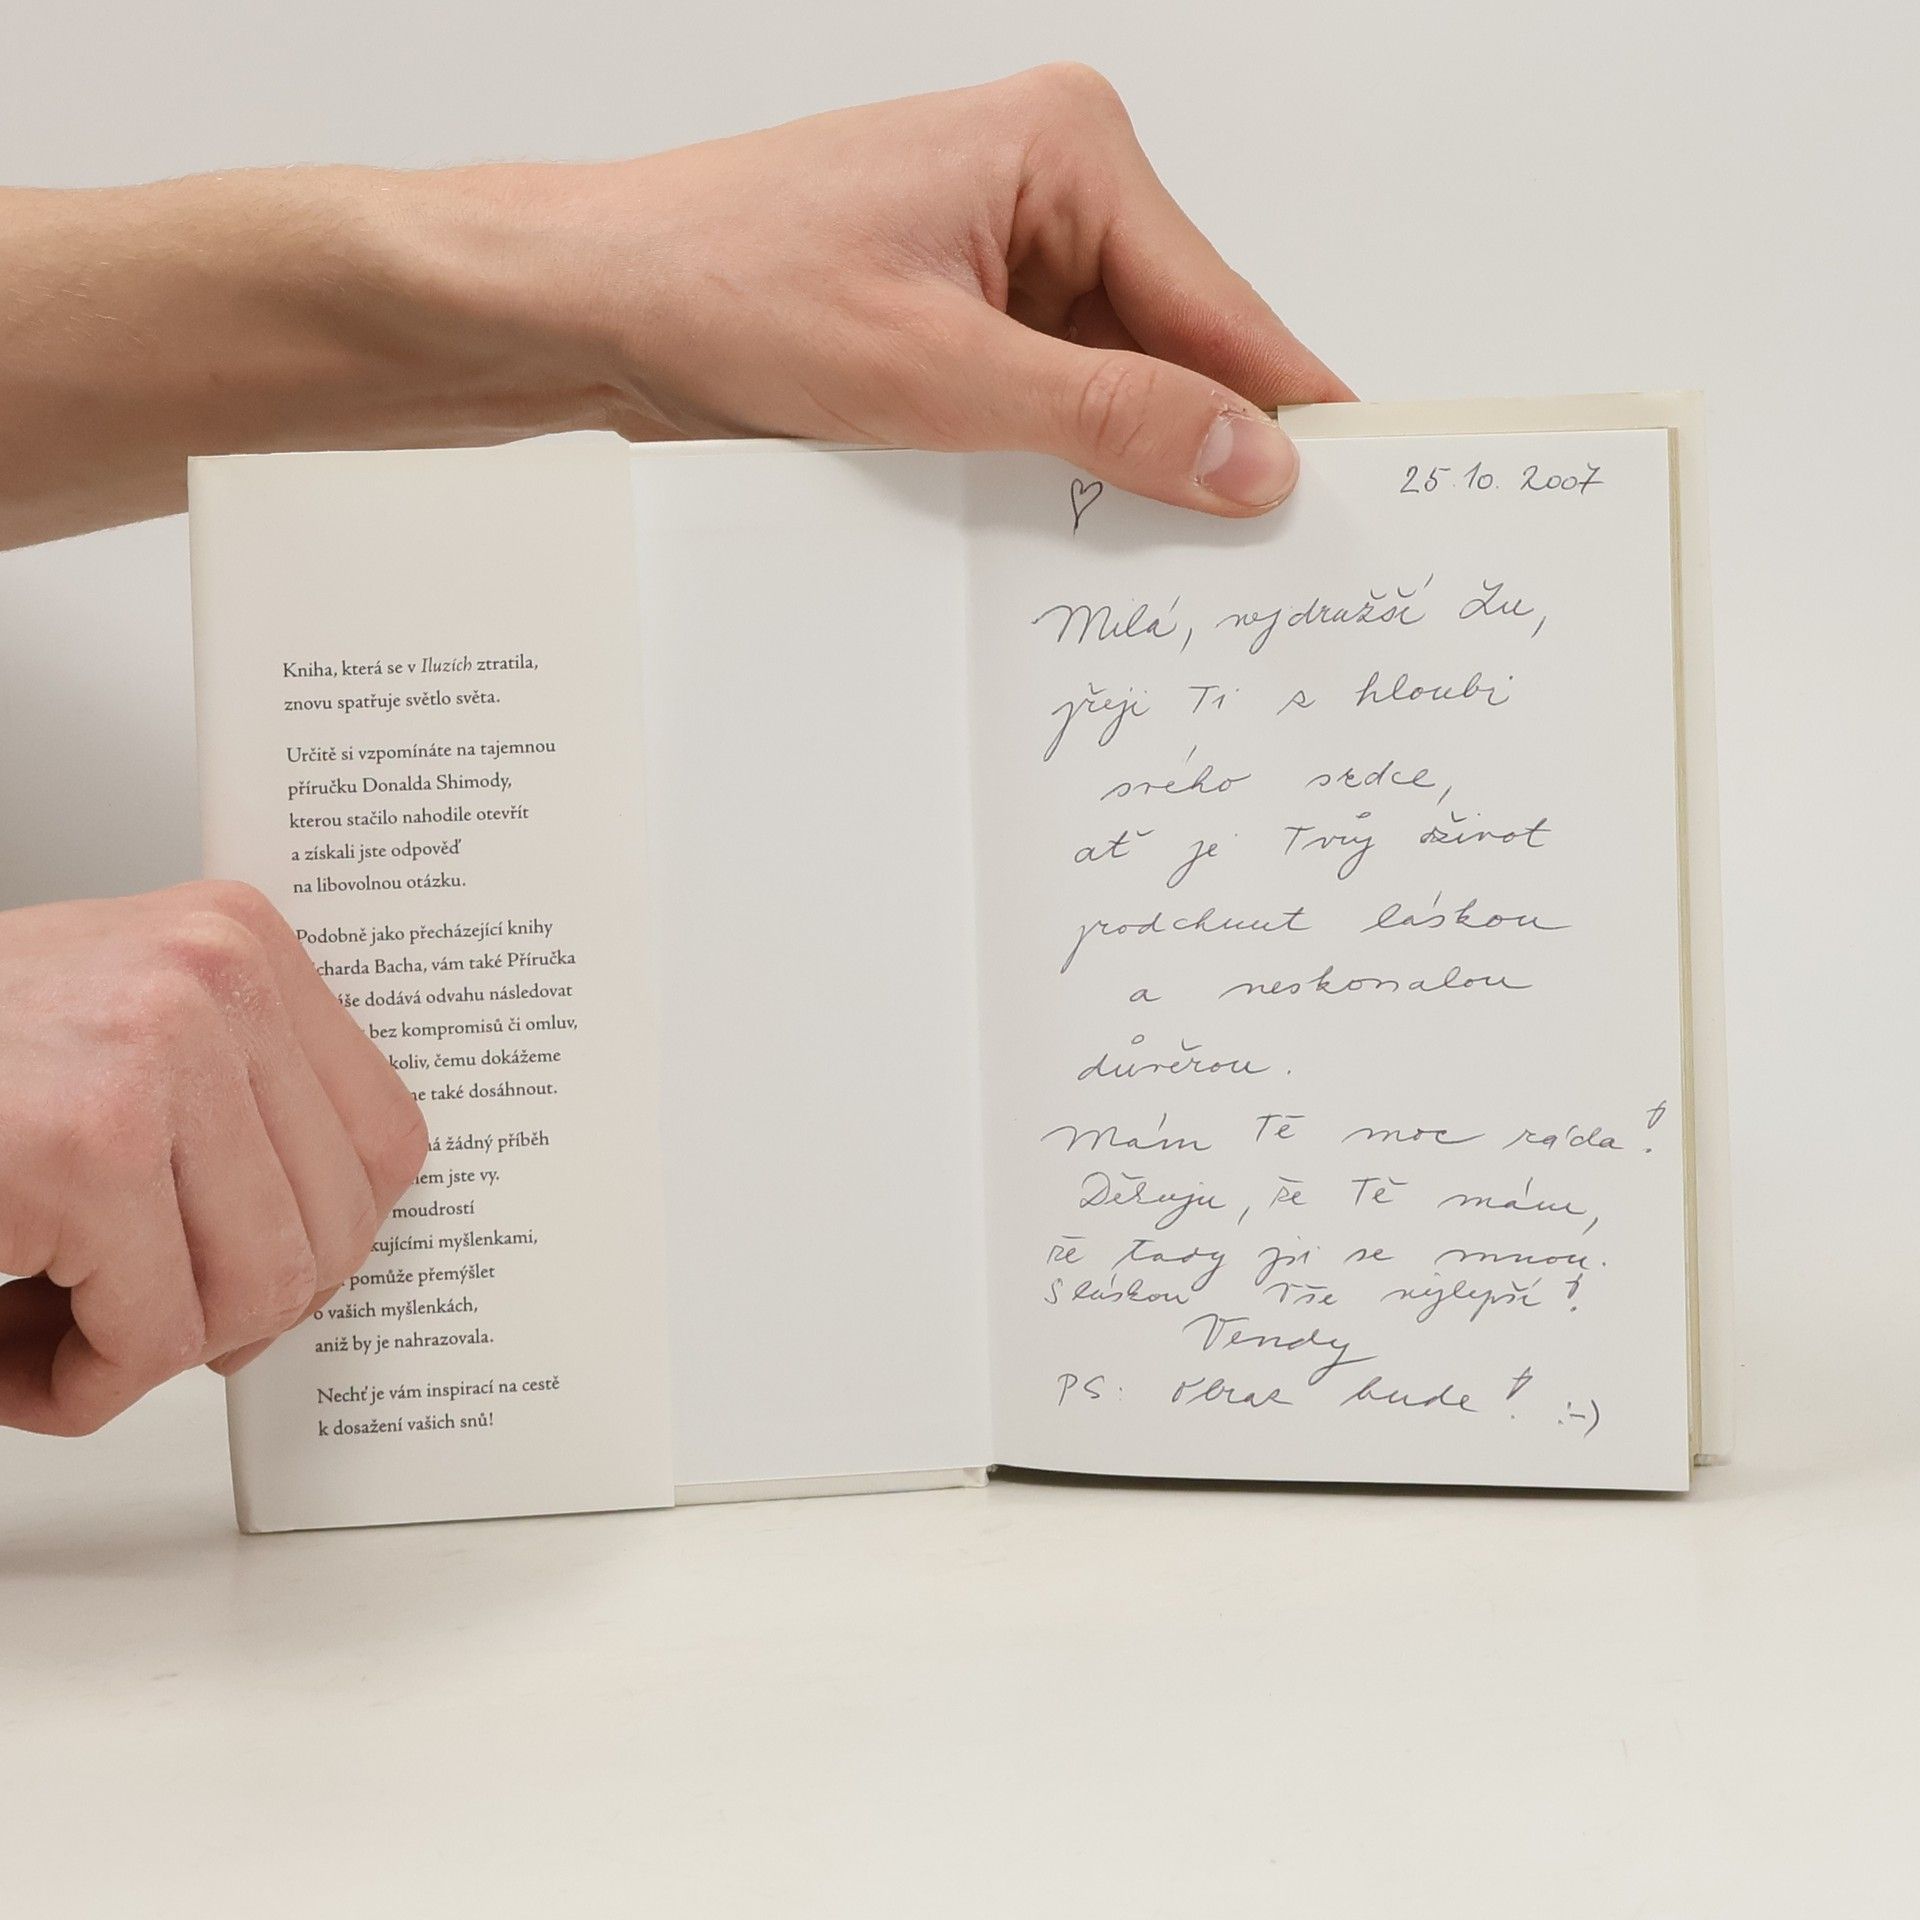 Kniha, která se v Iluzích ztratila,
znovu spatřuje světlo světa.
Určitě si vzpomínáte na tajemnou
příručku Donalda Shimody,
kterou stačilo nahodile otevřít
a získali jste odpověď
na libovolnou otázku.
Podobně jako přecházející knihy
charda Bacha, vám také Příručka
áše dodává odvahu následovat
bez kompromisů či omluv,
koliv, čemu dokážeme
me také dosáhnout.
á žádný příběh
jste vy.
moudrostí
kujícími myšlenkami,
pomůže přemýšlet
o vašich myšlenkách,
aniž by je nahrazovala.
Nechť je vám inspirací na cestě
k dosažení vašich snů!
25.10.2007
Milá, nejdražší Lu,
přeji Ti z hloubi
svého srdce,
ať je Tvůj život
prodchnut láskou
a neskonalou
důvěrou.
Mám Tě moc ráda!
Děkuju, že Tě mám,
že tady jsi se mnou.
S láskou vše nejlepší!
Vendy
PS: Obraz bude! :-)